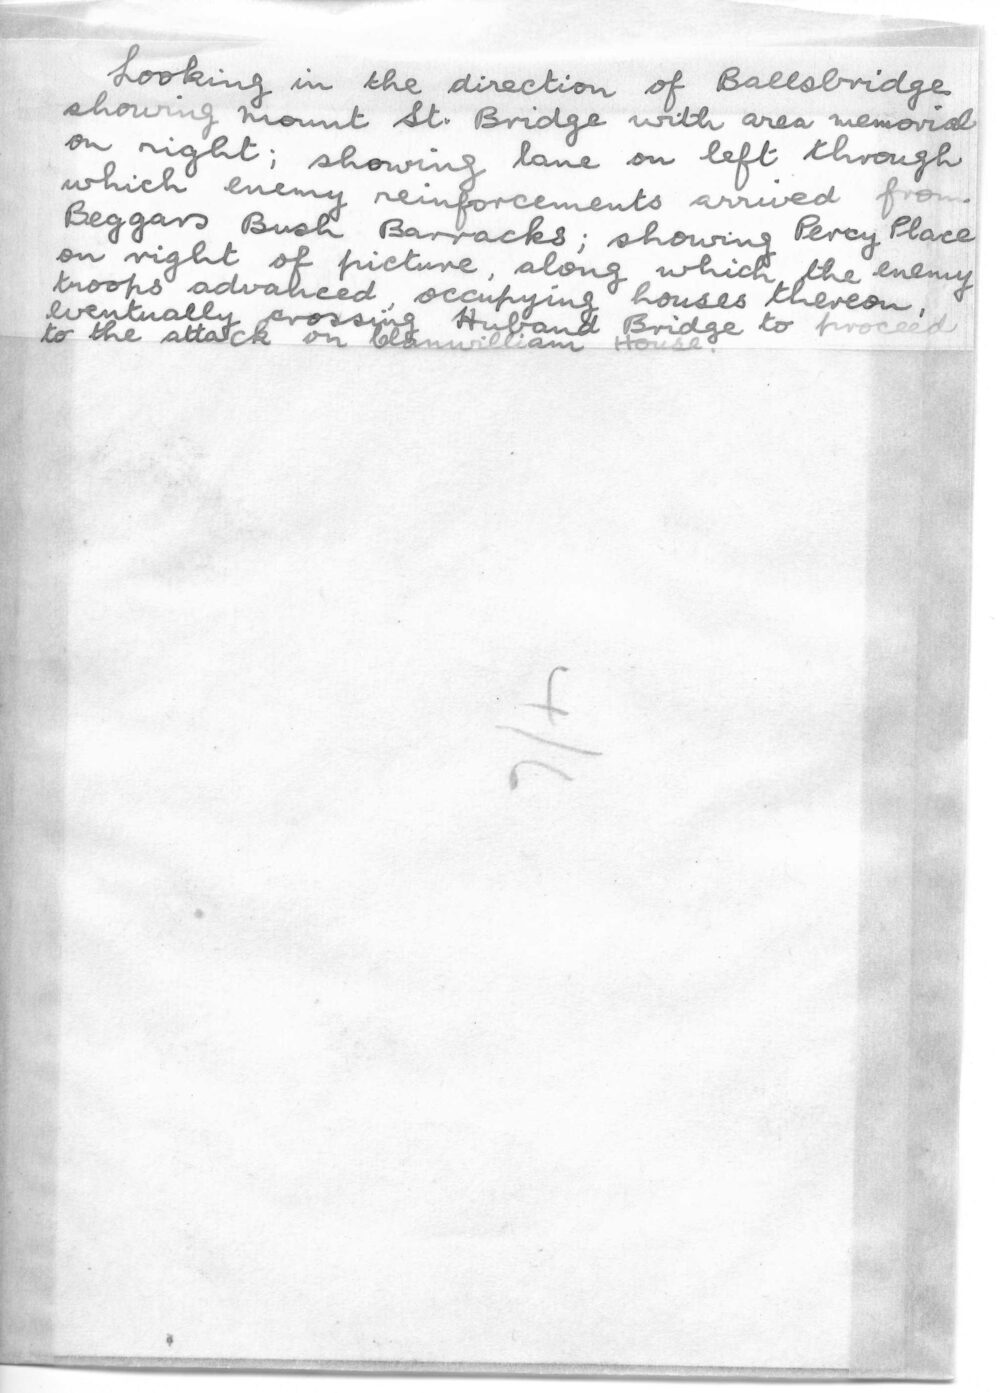 Looking in the direction of Ballsbridge
showing Mount St. Bridge with area memorial
on right; showing lane on left through
which enemy reinforcements arrived from
Beggars Bush Barracks; showing Percy Place
on right of picture, along which the enemy
troops advanced, occupying houses thereon,
eventually crossing Huband Bridge to proceed
to the attack on Clanwilliam House.